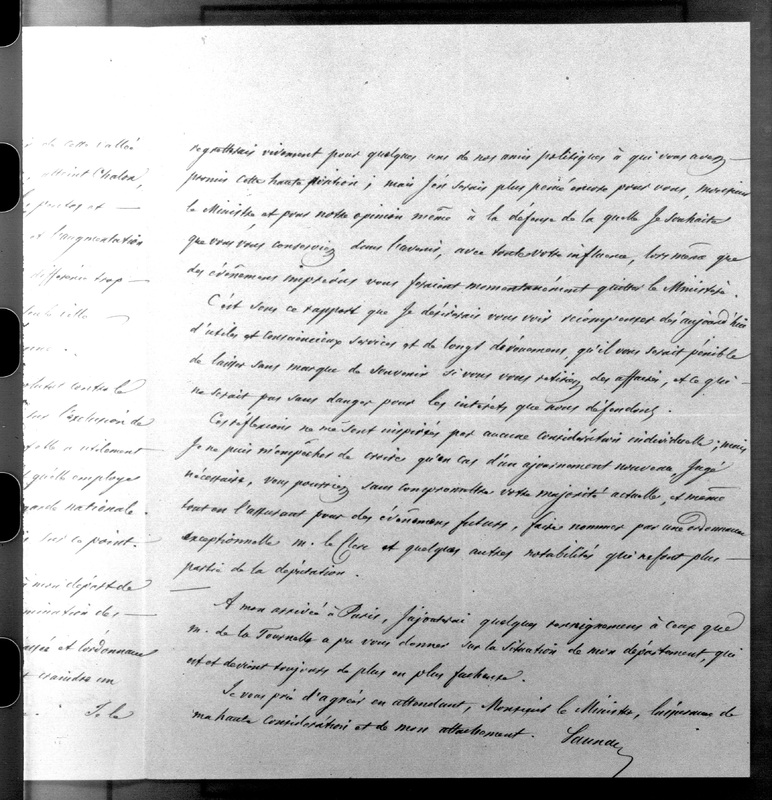 de cette vallée
atteint Chalon,
pertes et
et l'augmentation
différerai trop
sur la ville
contre le
sur l'exclusion de
a utilement
qu'elle employe
garde nationale.
sur ce point.
mon départ de
nomination des
et l'ordonnance
craindre un
Je le
regretterais vivement pour quelques uns de nos amis politiques à qui vous avez
promis cette haute position ; mais j'en serais plus peiné encore pour vous, monsieur
le Ministre, et pour notre opinion même à la défense de la quelle Je souhaite
que vous vous conserviez dans l'avenir, avec toute votre influence, lors même que
des événemens imprévus vous feraient momentanément quitter le Ministère.
C'est sous ce rapport que Je désirerais vous voir récompenser dès aujourd'hui
d'utiles et consciencieux services et de longs dévouemens, qu'il vous serait pénible
de laisser sans marque de souvenir si vous vous retiriez des affaires, et ce qui
ne serait pas sans danger pour les intérêts que nous défendons.
Ces réflexions ne me sont inspirées par aucune considération individuelle ; mais
Je ne puis m'empêcher de croire qu'en cas d'un ajournement nouveau, Jugé
nécessaire, vous pourriez sans compromettre votre majorité actuelle, et même
tout en l'assurant pour des événemens futurs, faire nommer par une ordonnance
exceptionnelle m. le Clerc et quelques autres notabilités qui ne font plus
partie de la députation.
A mon arrivée à Paris, J'ajouterai quelques renseignemens à ceux que
m. de la Tournelle a pu vous donner sur la situation de mon département, qui
est et devient toujours de plus en plus facheuse.
Je vous prie d'agréer en attendant, Monsieur le Ministre, l'assurance de
ma haute considération et de mon attachement.